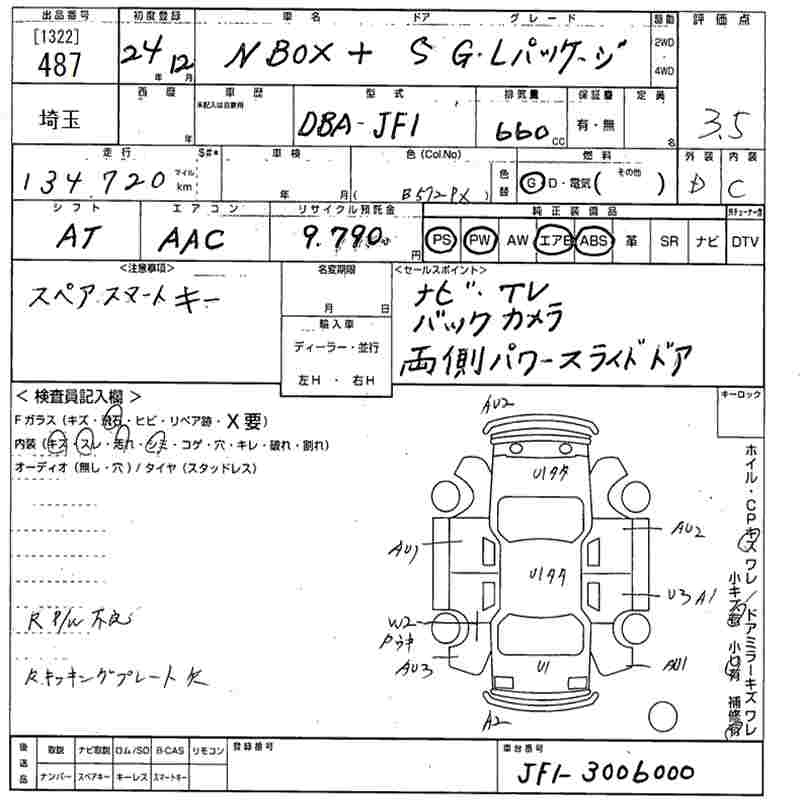 出品番号 初度登録 車名 ドア グレード 駆動 評価点
[1322]
487 24年12月 N BOX + S G・Lパッケージ 2WD・4WD 3.5
埼玉 西暦 年 車歴 未記入は自家用 型式 DBA-JF1 排気量 660cc 保証書 有・無 定員 名
走行 134,720 マイル km $#* 車検 年 月 色(Col.No) ( B572PX ) 色替 燃料 G・D・電気( その他 ) 外装 D 内装 C
シフト AT エアコン AAC リサイクル預託金 9.790円 純正装備品 PS PW AW エアB ABS 革 SR ナビ DTV
<注意事項>
スペアスマートキー
名変期限
月 日
輸入車
ディーラー・並行
左H ・ 右H
<セールスポイント>
ナビ・TV
バックカメラ
両側パワースライドドア
<検査員記入欄>
Fガラス (キズ・飛石・ヒビ・リペア跡・X要)
内装 (キズ・スレ・汚れ・シミ・コゲ・穴・キレ・破れ・割れ)
オーディオ (無し・穴) / タイヤ (スタッドレス)
R P/W 不良
Rキッキングプレート欠
キーロック
ホイル・CPキズ ワレ/ドアミラーキズ ワレ
小キズ有 小凹有 補修有
AU2
U1タタ
AU1
AU2
U1タタ
U3 A1
W2
Pウキ
AU3
U1
AU1
A2
後送品 取説 ナビ取説 ロム/SD B-CAS リモコン 登録番号 車台番号
ナンバー スペアキー キーレス スマートキー JF1-3006000